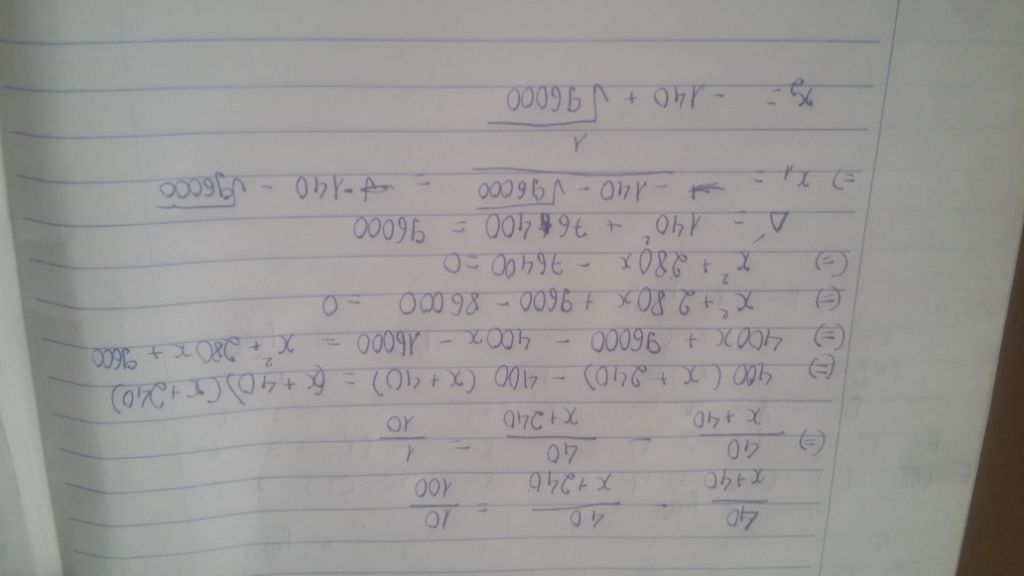 40/(x+40) - 40/(x+240) = 10/100
(=) 40/(x+40) - 40/(x+240) = 1/10
(=) 400(x+240) - 400(x+40) = (x+40)(x+240)
(=) 400x + 96000 - 400x - 16000 = x² + 280x + 9600
(=) x² + 280x + 9600 - 86000 = 0
(=) x² + 280x - 76400 = 0
Δ' = 140² + 76400 = 96000
=) x₁ = (-140 - √96000)/1 = -140 - √96000
x₂ = -140 + √96000